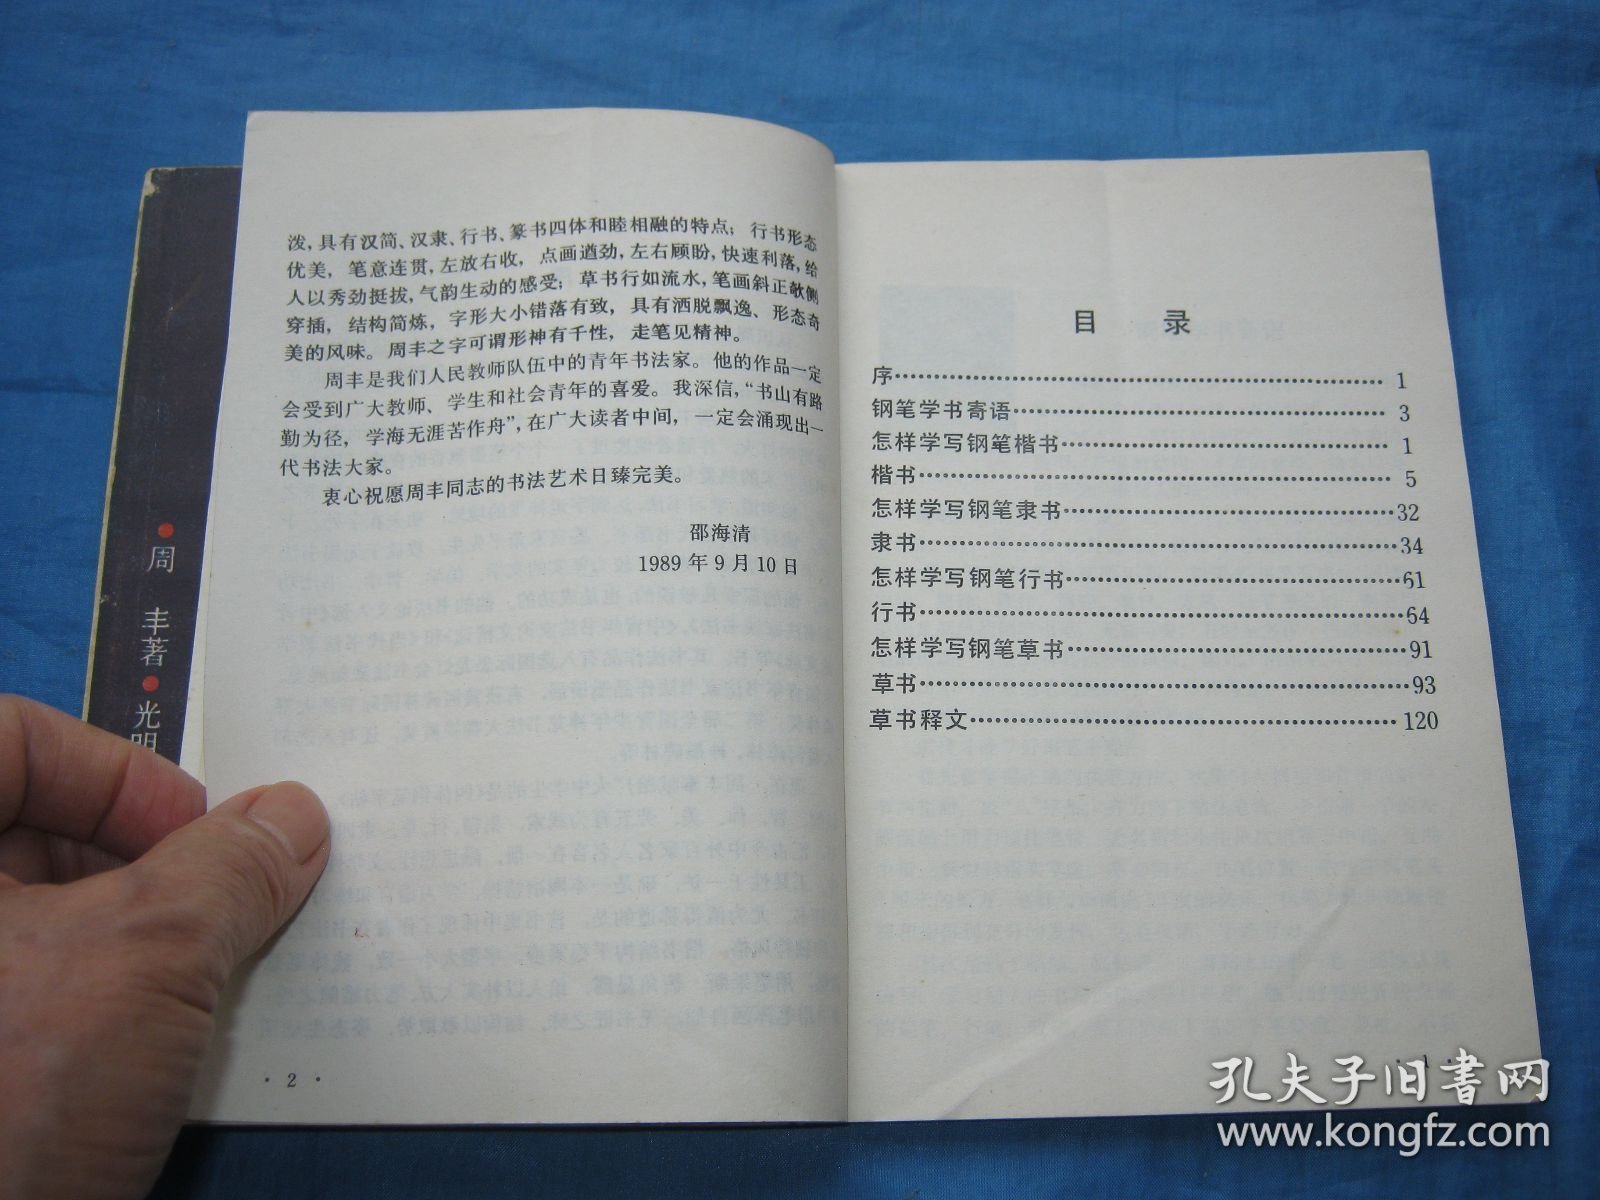 泼,具有汉简、汉隶、行书、篆书四体和睦相融的特点；行书形态
优美，笔意连贯,左放右收，点画遒劲,左右顾盼,快速利落,给
人以秀劲挺拔,气韵生动的感受；草书行如流水,笔画斜正欹侧
穿插，结构简炼，字形大小错落有致，具有洒脱飘逸、形态奇
美的风味。周丰之字可谓形神有千性，走笔见精神。
周丰是我们人民教师队伍中的青年书法家。他的作品一定
会受到广大教师、学生和社会青年的喜爱。我深信,“书山有路
勤为径，学海无涯苦作舟”,在广大读者中间，一定会涌现出一
代书法大家。
衷心祝愿周丰同志的书法艺术日臻完美。
邵海清
1989年9月10日
· 2 ·
目 录
序…………………………………………………… 1
钢笔学书寄语…………………………………………… 3
怎样学写钢笔楷书……………………………………… 1
楷书…………………………………………………… 5
怎样学写钢笔隶书………………………………………32
隶书……………………………………………………34
怎样学写钢笔行书………………………………………61
行书……………………………………………………64
怎样学写钢笔草书………………………………………91
草书……………………………………………………93
草书释文………………………………………………120
· 1 ·
周 丰著●光明
孔夫子旧书网
www.kongfz.com